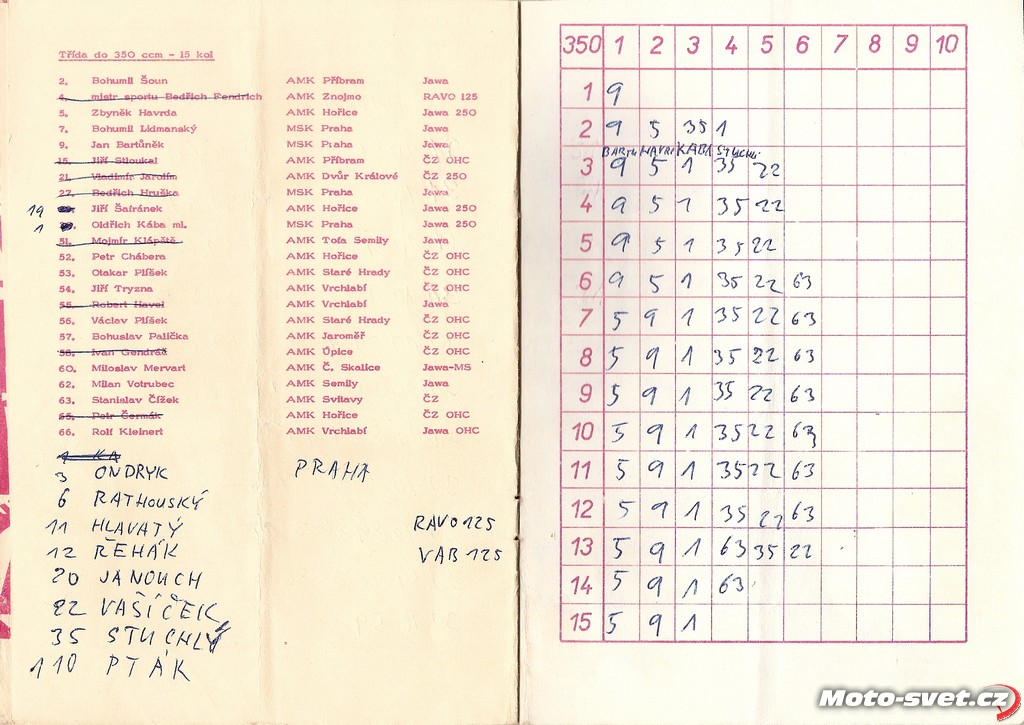 Třída do 350 ccm - 15 kol
2. Bohumil Šoun AMK Příbram Jawa
4. mistr sportu Bedřich Fendrich AMK Znojmo RAVO 125
5. Zbyněk Havrda AMK Hořice Jawa 250
7. Bohumil Lidmanský MSK Praha Jawa
9. Jan Bartůněk MSK Praha Jawa
15. Jiří Stloukal AMK Příbram ČZ OHC
21. Vladimír Jarolím AMK Dvůr Králové ČZ 250
27. Bedřich Hruška MSK Praha Jawa
19 Jiří Šafránek AMK Hořice Jawa 250
1 Oldřich Kába ml. MSK Praha Jawa 250
51. Mojmír Klápště AMK Tofa Semily Jawa
52. Petr Chábera AMK Hořice ČZ OHC
53. Otakar Plíšek AMK Staré Hrady ČZ OHC
54. Jiří Tryzna AMK Vrchlabí ČZ OHC
55. Robert Havel AMK Vrchlabí Jawa
56. Václav Plíšek AMK Staré Hrady ČZ OHC
57. Bohuslav Palička AMK Jaroměř ČZ OHC
58. Ivan Gendráš AMK Úpice ČZ OHC
60. Miloslav Mervart AMK Č. Skalice Jawa-MS
62. Milan Votrubec AMK Semily Jawa
63. Stanislav Čížek AMK Svitavy ČZ
65. Petr Čermák AMK Hořice ČZ OHC
66. Rolf Kleinert AMK Vrchlabí Jawa OHC
1 KA
3 ONDRYK PRAHA
6 RATHOUSKÝ
11 HLAVATÝ RAVO 125
12 ŘEHÁK VAB 125
20 JANOUCH
22 VAŠÍČEK
35 STUCHLÝ
110 PTÁK
350 1 2 3 4 5 6 7 8 9 10
1 9
2 9 5 35 1
BARTU HAVR KÁBA STUCHL
3 9 5 1 35 22
4 9 5 1 35 22
5 9 5 1 35 22
6 9 5 1 35 22 63
7 5 9 1 35 22 63
8 5 9 1 35 22 63
9 5 9 1 35 22 63
10 5 9 1 35 22 63
11 5 9 1 35 22 63
12 5 9 1 35 22 63
13 5 9 1 63 35 22
14 5 9 1 63
15 5 9 1
Moto-svet.cz